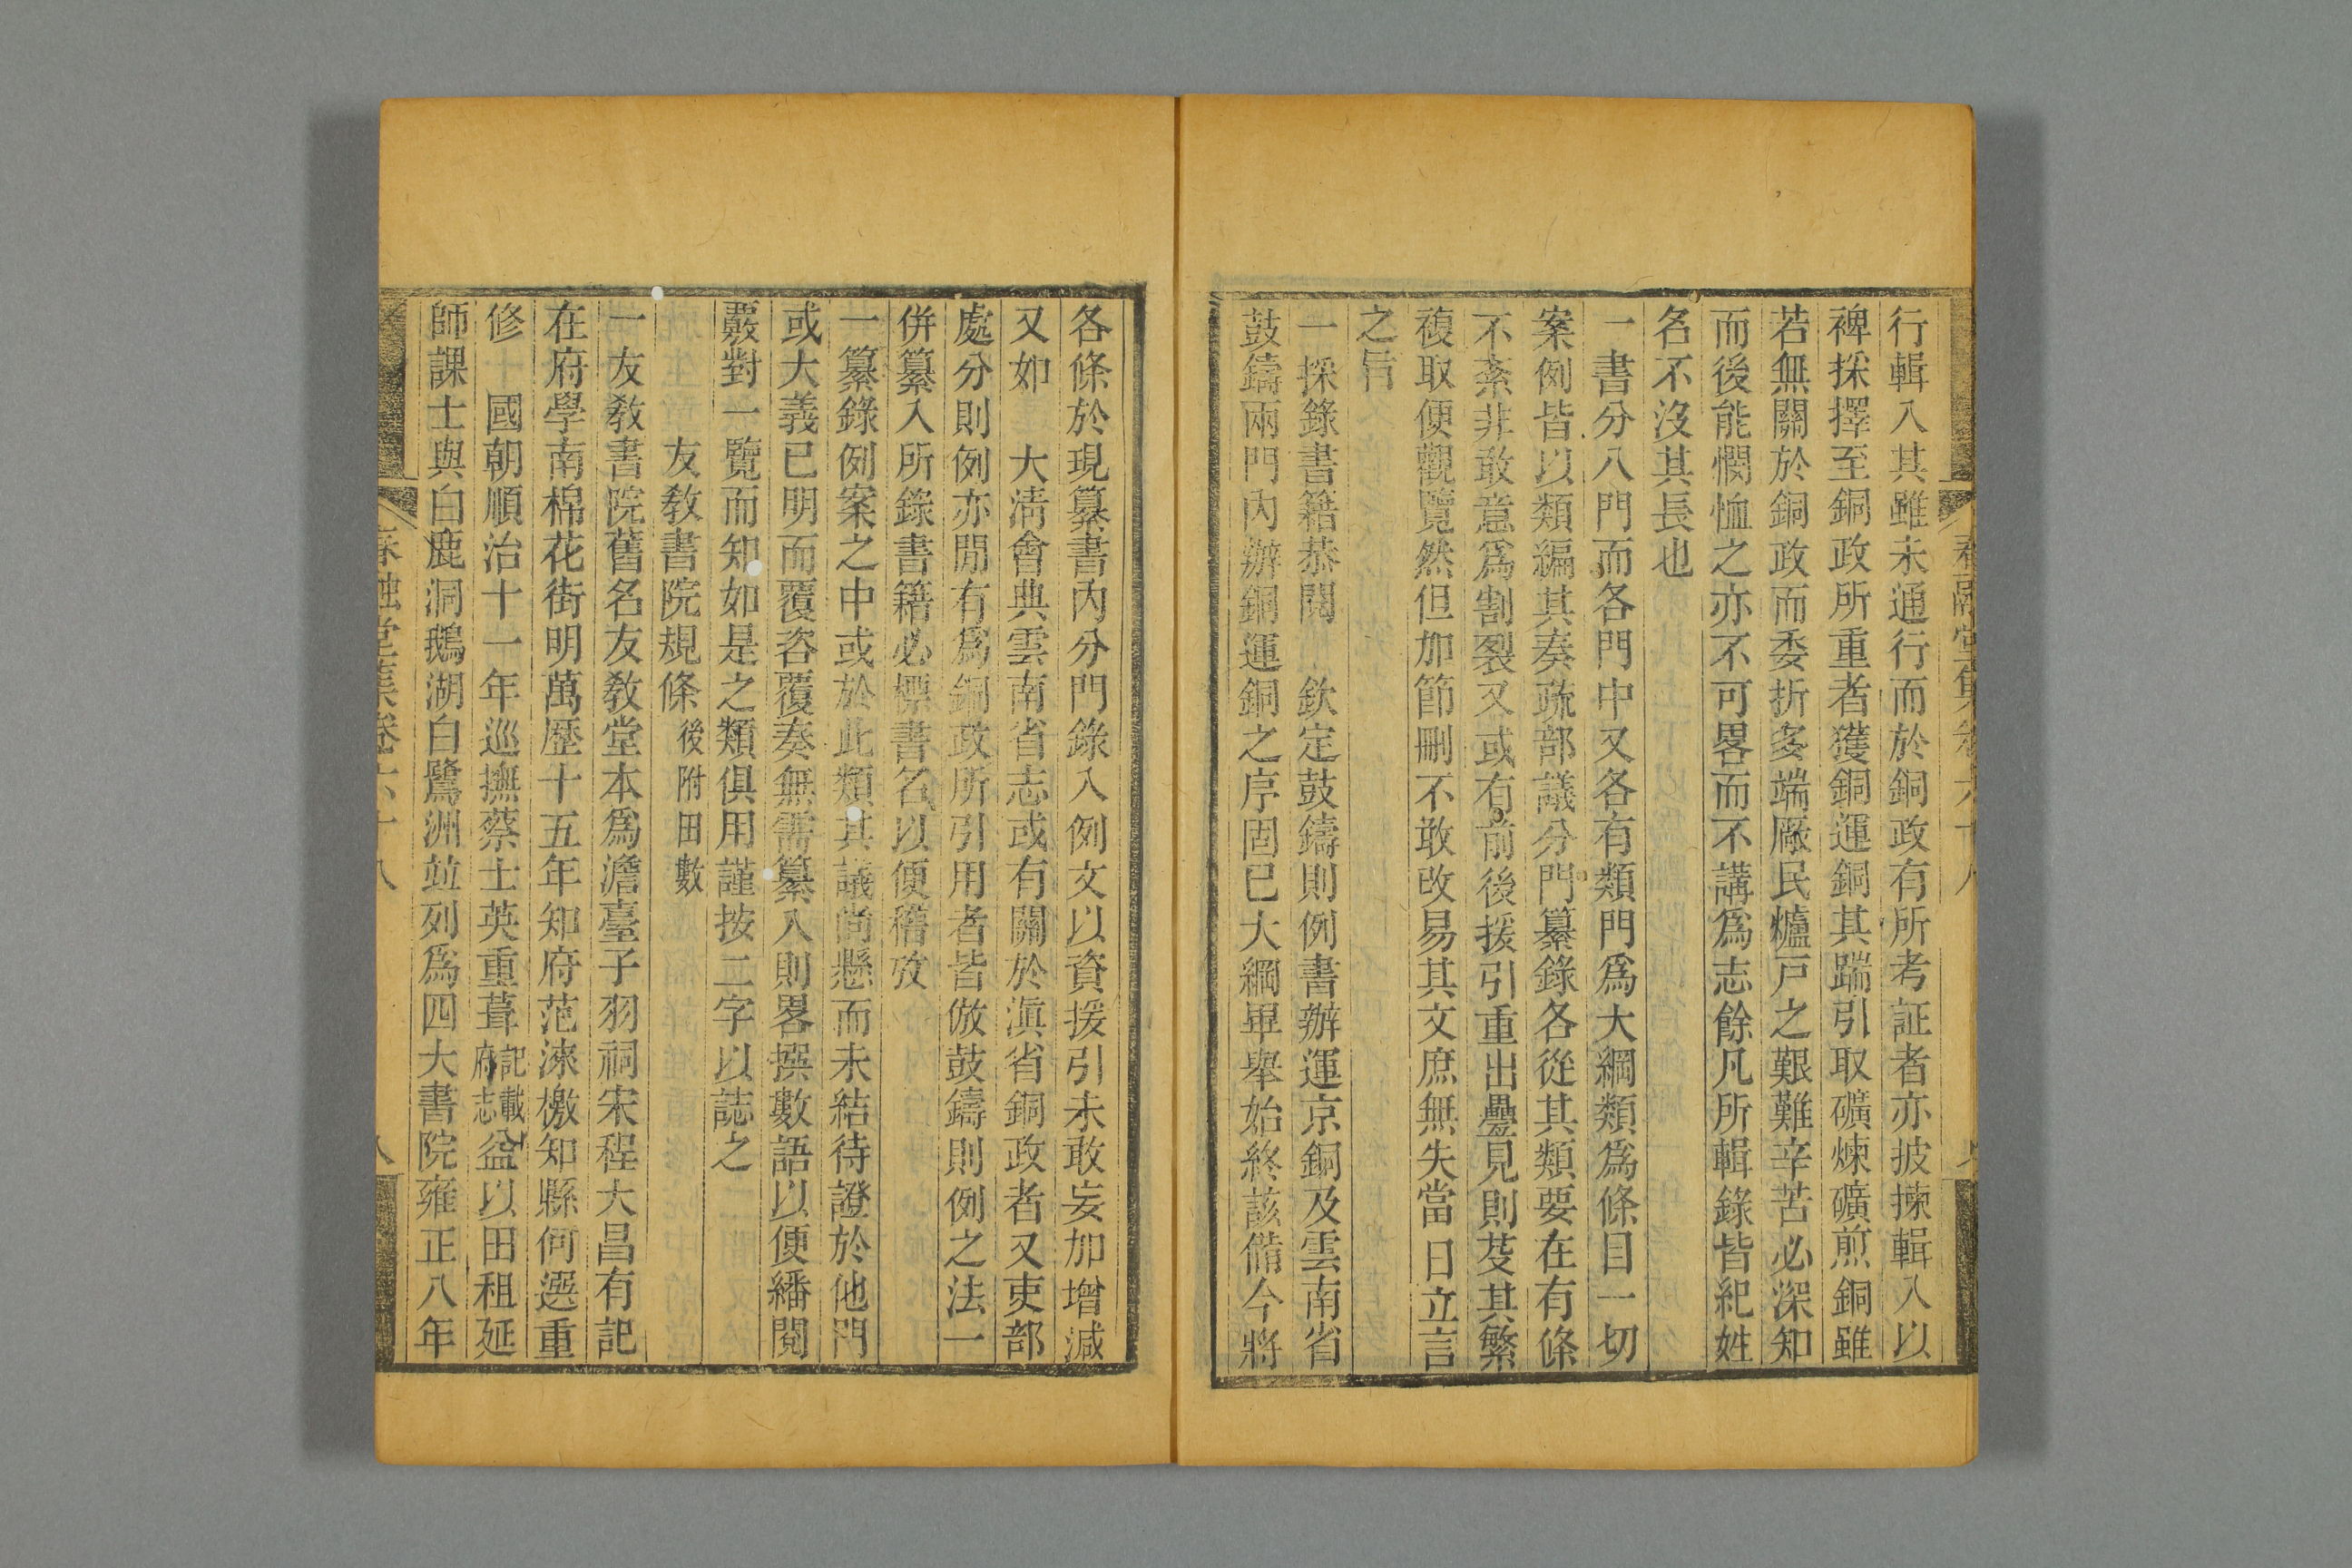 行輯入其雖未通行而於銅政有所考証者亦披揀輯入以
裨採擇至銅政所重者獲銅運銅其踹引取礦煉礦煎銅雖
若無關於銅政而委折多端厰民爐戸之艱難辛苦必深知
而後能憫恤之亦不可畧而不講爲志餘凡所輯錄皆紀姓
名不沒其長也
一書分八門而各門中又各有類門爲大綱類爲條目一切
案例皆以類編其奏疏部議分門纂錄各從其類要在有條
不紊非敢意爲割裂又或有前後援引重出疊見則芟其繁
複取便觀覽然但加節刪不敢改易其文庶無失當日立言
之旨
一採錄書籍恭閱　欽定鼓鑄則例書辦運京銅及雲南省
鼓鑄兩門內辦銅運銅之序固已大綱畢舉始終該備今將
各條於現纂書內分門錄入例文以資援引未敢妄加增減
又如　大淸會典雲南省志或有關於滇省銅政者又吏部
處分則例亦閒有爲銅政所引用者皆倣鼓鑄則例之法一
併纂入所錄書籍必標書名以便稽攷
一纂錄例案之中或於此類其議尚懸而未結待證於他門
或大義已明而覆咨覆奏無需纂入則畧撰數語以便繙閱
覈對一覽而知如是之類俱用謹按二字以誌之
友敎書院規條後附田數
一友敎書院舊名友敎堂本爲澹臺子羽祠宋程大昌有記
在府學南棉花街明萬歷十五年知府范淶檄知縣何選重
修　國朝順治十一年巡撫蔡士英重葺記載府志益以田租延
師課士與白鹿洞鵝湖白鷺洲竝列爲四大書院雍正八年
春融堂集卷六十八　八